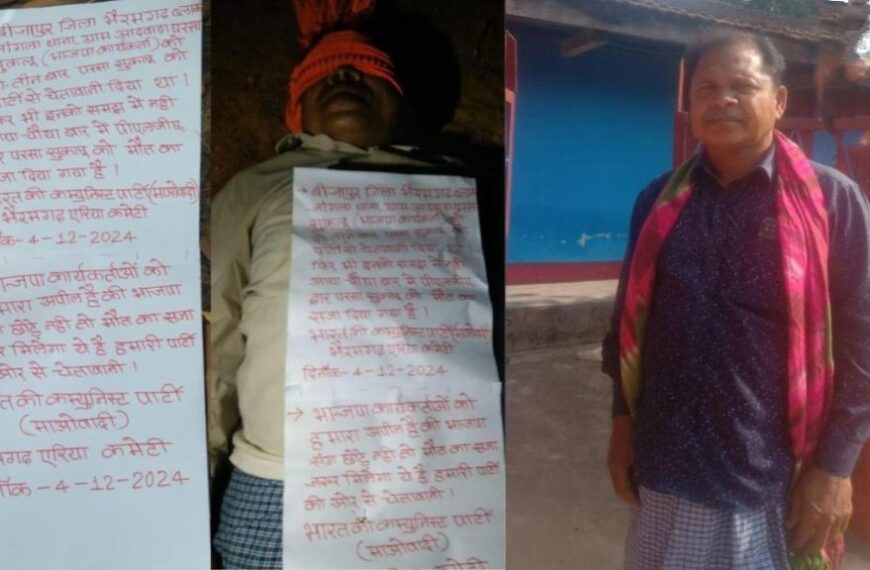 बीजापुर जिला भैरमगढ़ ब्लाक
जांगला थाना, ग्राम आदवाड़ा परसा
सुकलू (भाजपा कार्यकर्ता) को
-तीन बार परसा सुकलू को
पार्टी से चेतावनी दिया था।
भी इनको समझ में नही
आया-चौथा बार में पीएलजीए
परसा सुकलू को मौत का
सजा दिया गया है।
भारत की कम्युनिस्ट पार्टी (माओवादी)
भैरमगढ़ एरिया कमेटी
-4-12-2024
भाजपा कार्यकर्ताओं को
हमारा अपील है की भाजपा
छोड़ु नही तो मौत का सजा
मिलेगा ये है हमारी पार्टी
ओर से चेतावनी।
की कम्युनिस्ट पार्टी
(माओवादी)
एरिया कमेटी
-4-12-2024
→ बीजापुर जिला भैरमगढ़ ब्लाक
जांगला थाना, ग्राम आदवाड़ा परसा
सुकलू (भाजपा कार्यकर्ता)
बार परसा सुकलू को
पार्टी से चेतावनी दिया था
फिर भी इनको समझ में नही
आया-चौथा बार में पीएलजीए
द्वारा परसा सुकलू को मौत का
सजा दिया गया है।
भारत की कम्युनिस्ट पार्टी (माओवादी)
भैरमगढ़ एरिया कमेटी
दिनाँक-4-12-2024
→ भाजपा कार्यकर्ताओं को
हमारा अपील है की भाजपा
छोड़ु नही तो मौत का सजा
जरूर मिलेगा ये है हमारी पार्टी
की ओर से चेतावनी।
भारत की कम्युनिस्ट पार्टी
(माओवादी)